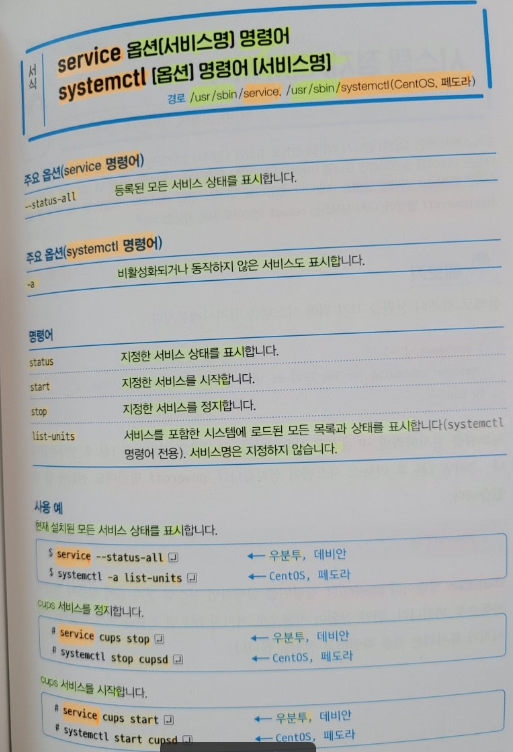 서식
service 옵션[서비스명] 명령어
systemctl [옵션] 명령어 [서비스명]
경로 /usr/sbin/service, /usr/sbin/systemctl(CentOS, 페도라)
주요 옵션(service 명령어)
--status-all 등록된 모든 서비스 상태를 표시합니다.
주요 옵션(systemctl 명령어)
-a 비활성화되거나 동작하지 않은 서비스도 표시합니다.
명령어
status 지정한 서비스 상태를 표시합니다.
start 지정한 서비스를 시작합니다.
stop 지정한 서비스를 정지합니다.
list-units 서비스를 포함한 시스템에 로드된 모든 목록과 상태를 표시합니다(systemctl
명령어 전용). 서비스명은 지정하지 않습니다.
사용 예
현재 설치된 모든 서비스 상태를 표시합니다.
$ service --status-all ↵ ← 우분투, 데비안
$ systemctl -a list-units ↵ ← CentOS, 페도라
cups 서비스를 정지합니다.
# service cups stop ↵ ← 우분투, 데비안
# systemctl stop cupsd ↵ ← CentOS, 페도라
cups 서비스를 시작합니다.
# service cups start ↵ ← 우분투, 데비안
# systemctl start cupsd ↵ ← CentOS, 페도라